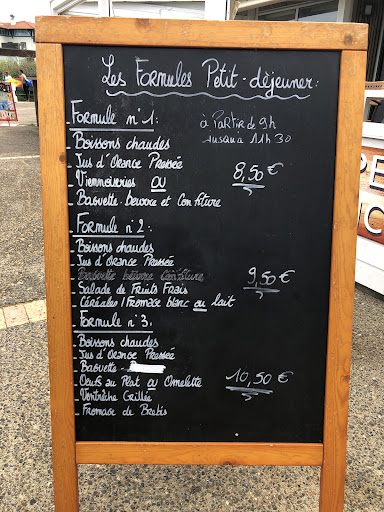 Les Formules Petit-déjeuner:
Formule n°1:
à Partir de 9h
Jusqu'à 11h30
Boissons chaudes
Jus d'Orange Pressée
Viennoiseries ou
8,50 €
Baguette. Beurre et Confiture
Formule n°2:
Boissons chaudes
Jus d'Orange Pressée
Baguette beurre Confiture
9,50 €
Salade de Fruits Frais
Céréales / Fromage blanc ou lait
Formule n°3:
Boissons chaudes
Jus d'Orange Pressée
Baguette -
Oeufs au Plat ou Omelette
10,50 €
Ventrèche Grillée
Fromage de Brebis